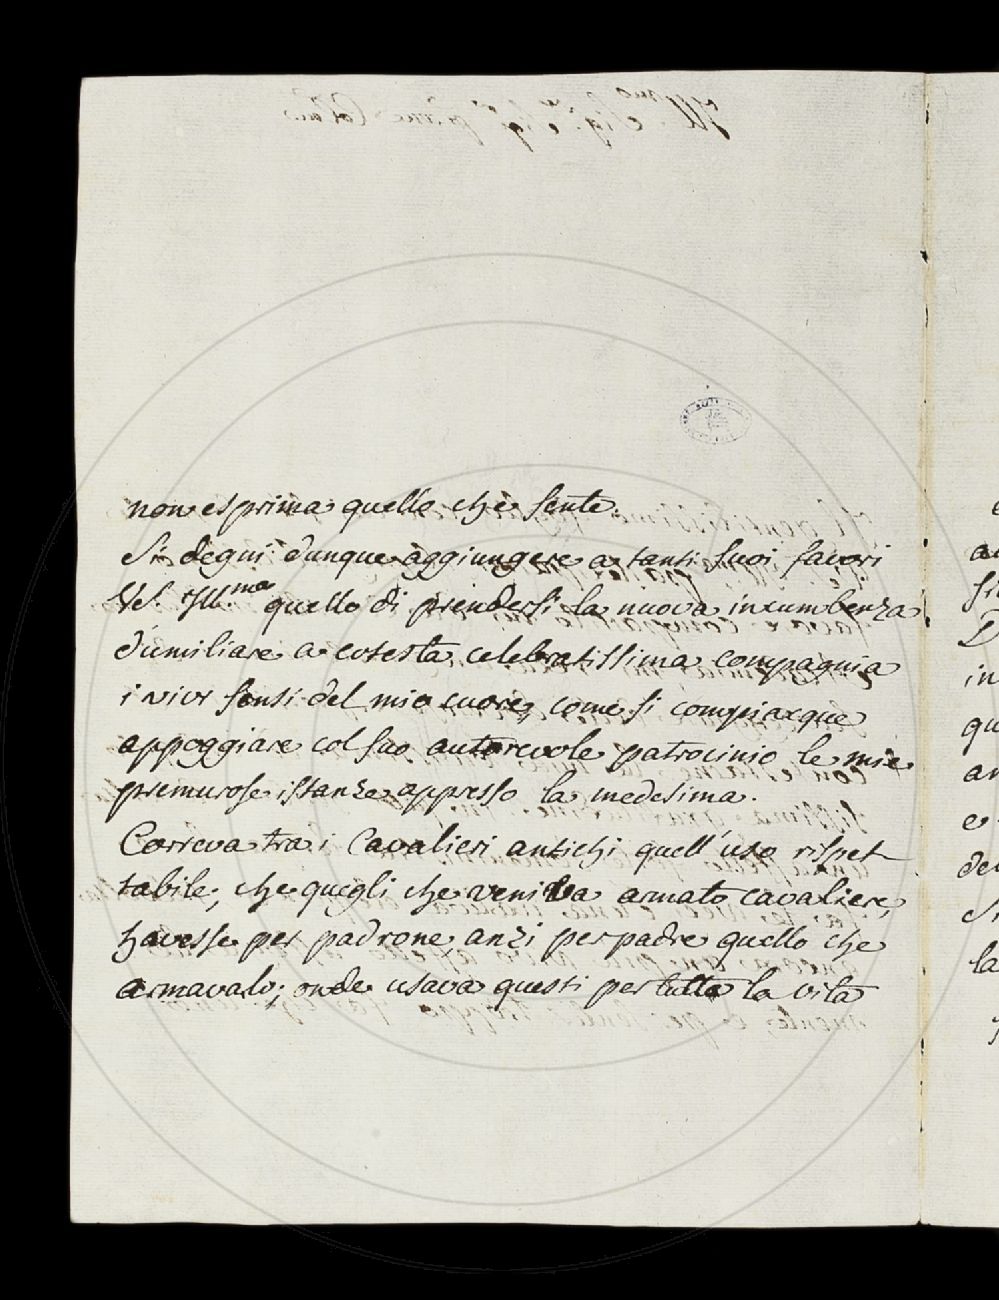 non esprima quello che sente.
Si degni dunque aggiungere a tanti suoi favori
VS. Ill.ma quello di prendersi la nuova incumbenza
d'umiliare a cotesta celebratissima compagnia
i vivi sensi del mio cuore, come si compiacque
appoggiare col suo autorevole patrocinio le mie
premurose istanze appresso la medesima.
Correva tra i Cavalieri antichi quell'uso rispet
tabile, che quegli che veniva armato cavaliere,
havesse per padrone anzi per padre quello che
armavalo; onde usava questi per tutta la vita